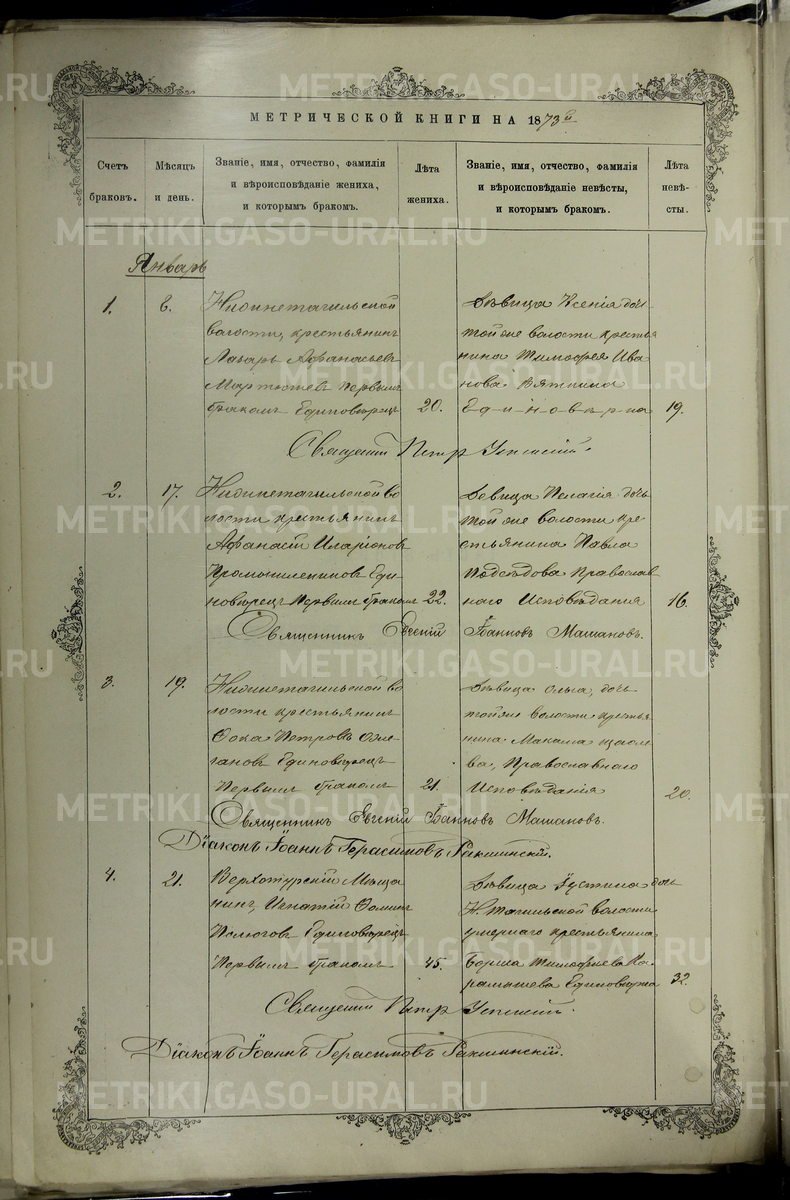 МЕТРИЧЕСКОЙ КНИГИ НА 1873й
Счетъ браковъ.
Мѣсяцъ и день.
Званіе, имя, отчество, фамилія
и вѣроисповѣданіе жениха,
и которымъ бракомъ.
Лѣта жениха.
Званіе, имя, отчество, фамилія
и вѣроисповѣданіе невѣсты,
и которымъ бракомъ.
Лѣта невѣ-
сты.
Январь
1.
Нижнетагильской
волости, крестьянинъ
Лазарь Афанасьевъ
первымъ
бракомъ Единовѣрецъ
20.
Дѣвица Ксенія дочь
той же волости крестья
нина Тимофея Ива
нова Вяткина
Единовѣрца
19.
Священникъ Петръ
2.
17.
Нижнетагильской во
лости крестьянинъ
Афанасій Иларіоновъ
Еди
новѣрецъ первымъ бракомъ
22.
Дѣвица Пелагія дочь
той же волости кре-
стьянина Павла
Православ
наго Исповѣданія
16.
Священникъ Евгеній Іоанновъ Машановъ.
3.
19.
Нижнетагильской во
лости крестьянинъ
Фока Петровъ
Единовѣрецъ
Первымъ бракомъ
21.
Дѣвица Ольга, дочь
той же волости крестья
нина
Православнаго
Исповѣданія
20.
Священникъ Евгеній Іоанновъ Машановъ.
Діаконъ Іоаннъ Герасимовъ
4.
21.
Верхотурскій Мѣща
нинъ, Игнатій Фоминъ
Единовѣрецъ
Первымъ бракомъ
45.
Дѣвица Іустина дочь
Н. Тагильской волости
умершаго крестьянина
Бориса Тимофеева Ка
рамышева Единовѣрца
32.
Священникъ Петръ
Діаконъ Іоаннъ Герасимовъ
METRIKI.GASO-URAL.RU